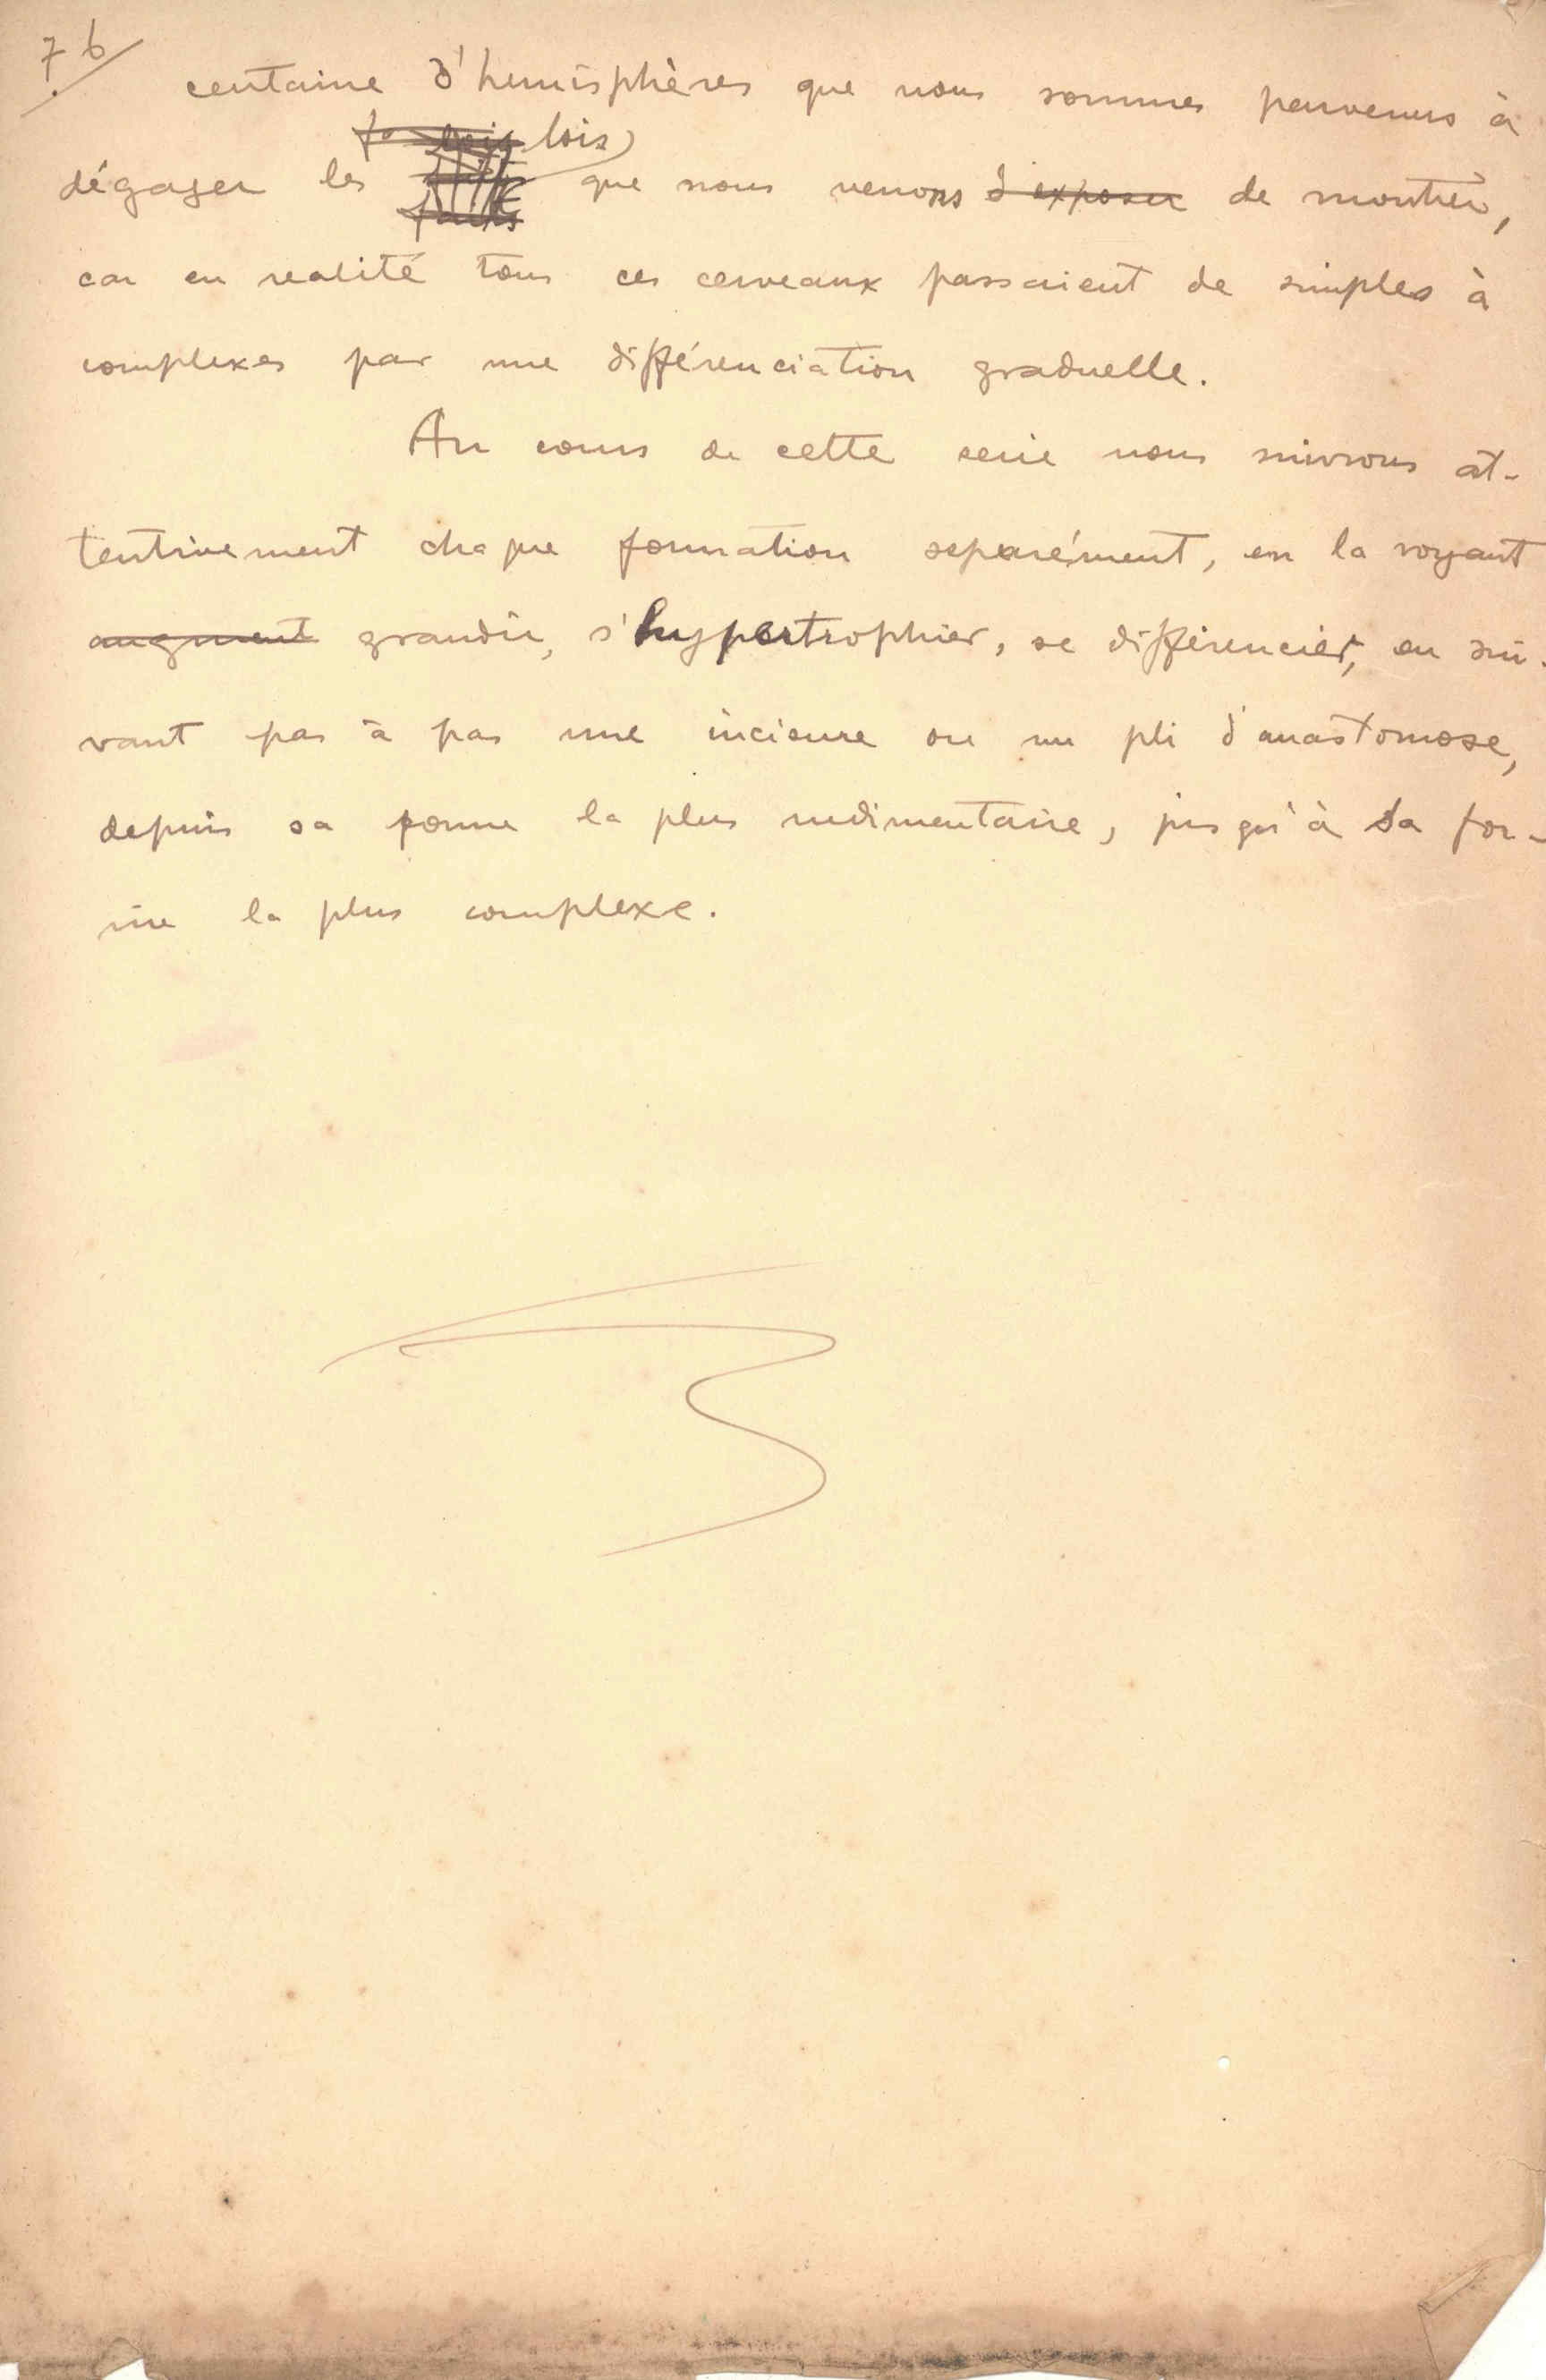 76
centaine d'hemisphères que nous sommes parvenus à
lois
dégager les que nous venons d'exposer de montrer,
car en realité tous ces cerveaux passaient de simples à
complexes par une différenciation graduelle.
Au cours de cette serie nous suivrons at-
tentivement chaque formation separément, en la voyant
augment grandir, s'hypertrophier, se différencier, en sui-
vant pas à pas une incisure ou un pli d'anastomose,
depuis sa forme la plus rudimentaire, jusqu'à sa for-
me la plus complexe.